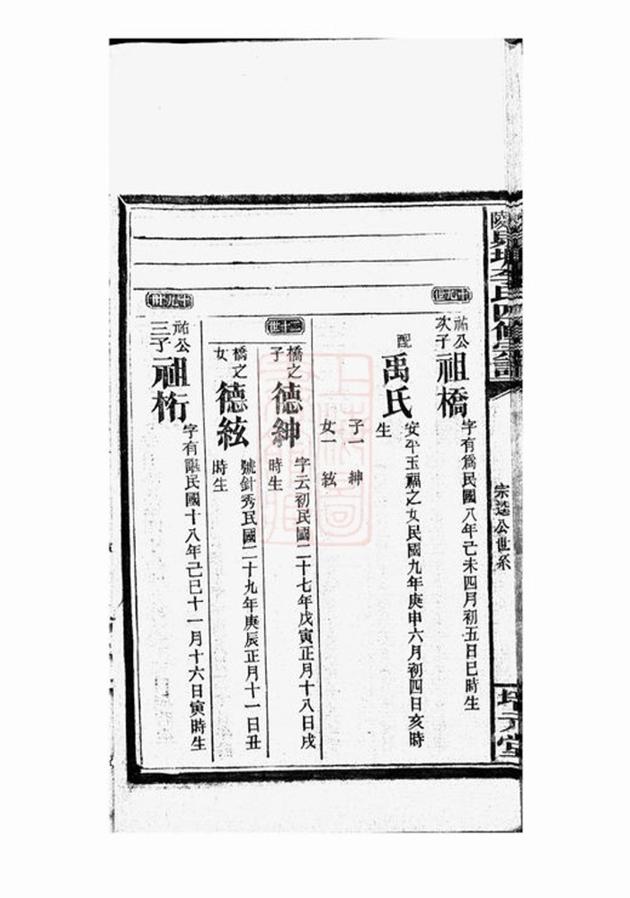 十九世
祐公次子
祖橋
字有為民國八年己未四月初五日巳時生
配
禹氏
安平玉福之女民國九年庚申六月初四日亥時生
子一 紳
女一 絃
二十世
橋之子
德紳
字云初民國二十七年戊寅正月十八日戌時生
橋之女
德絃
號針秀民國二十九年庚辰正月十一日丑時生
十九世
祐公三子
祖桁
字有 民國十八年己巳十一月十六日寅時生
氏四修宗譜
宗 公世系
元堂